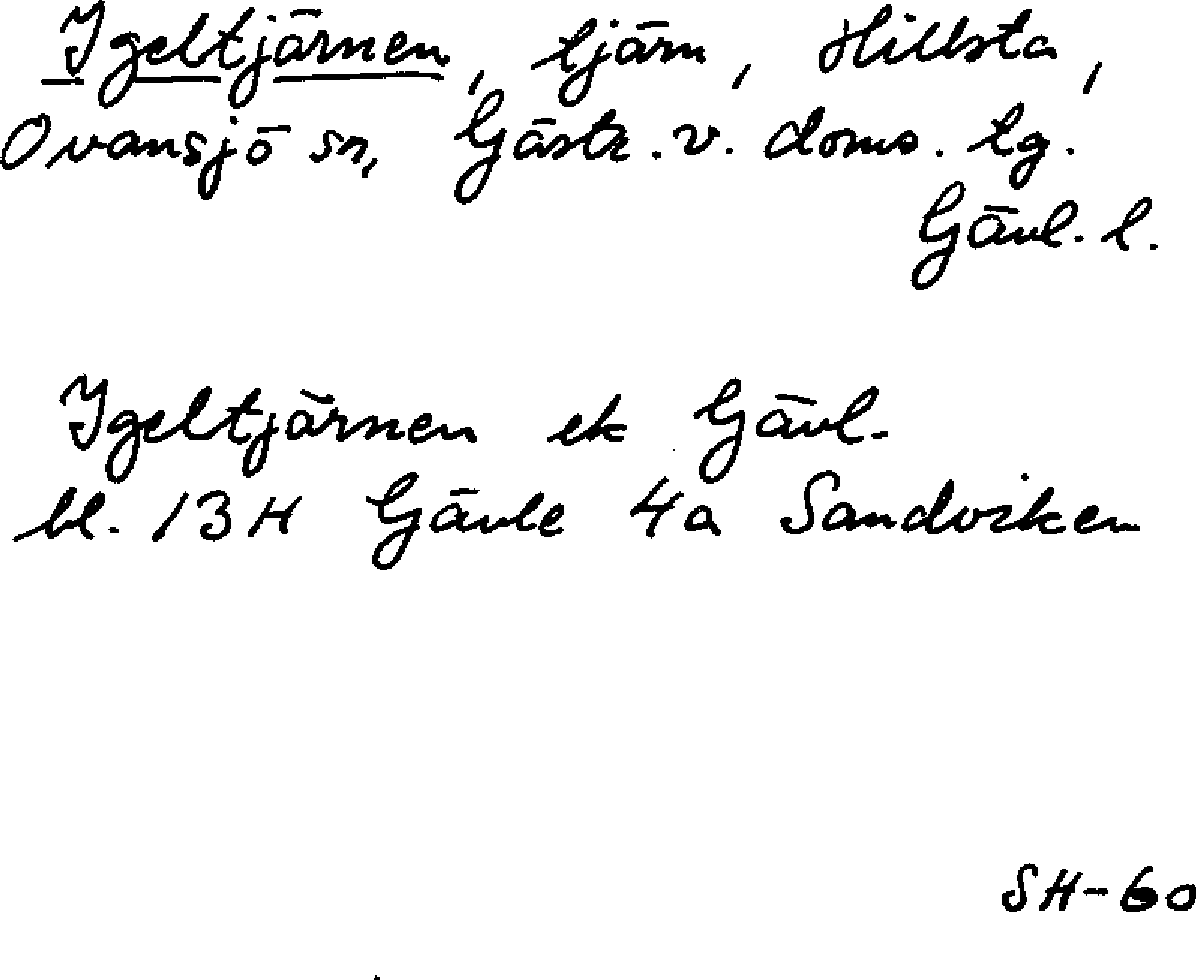 Igeltjärnen, tjärn, Hillsta,
Ovansjö sn, Gästr. v. doms. tg.
Gävl. l.
Igeltjärnen ek Gävl.
bl. 13H Gävle 4a Sandviken
SH-60